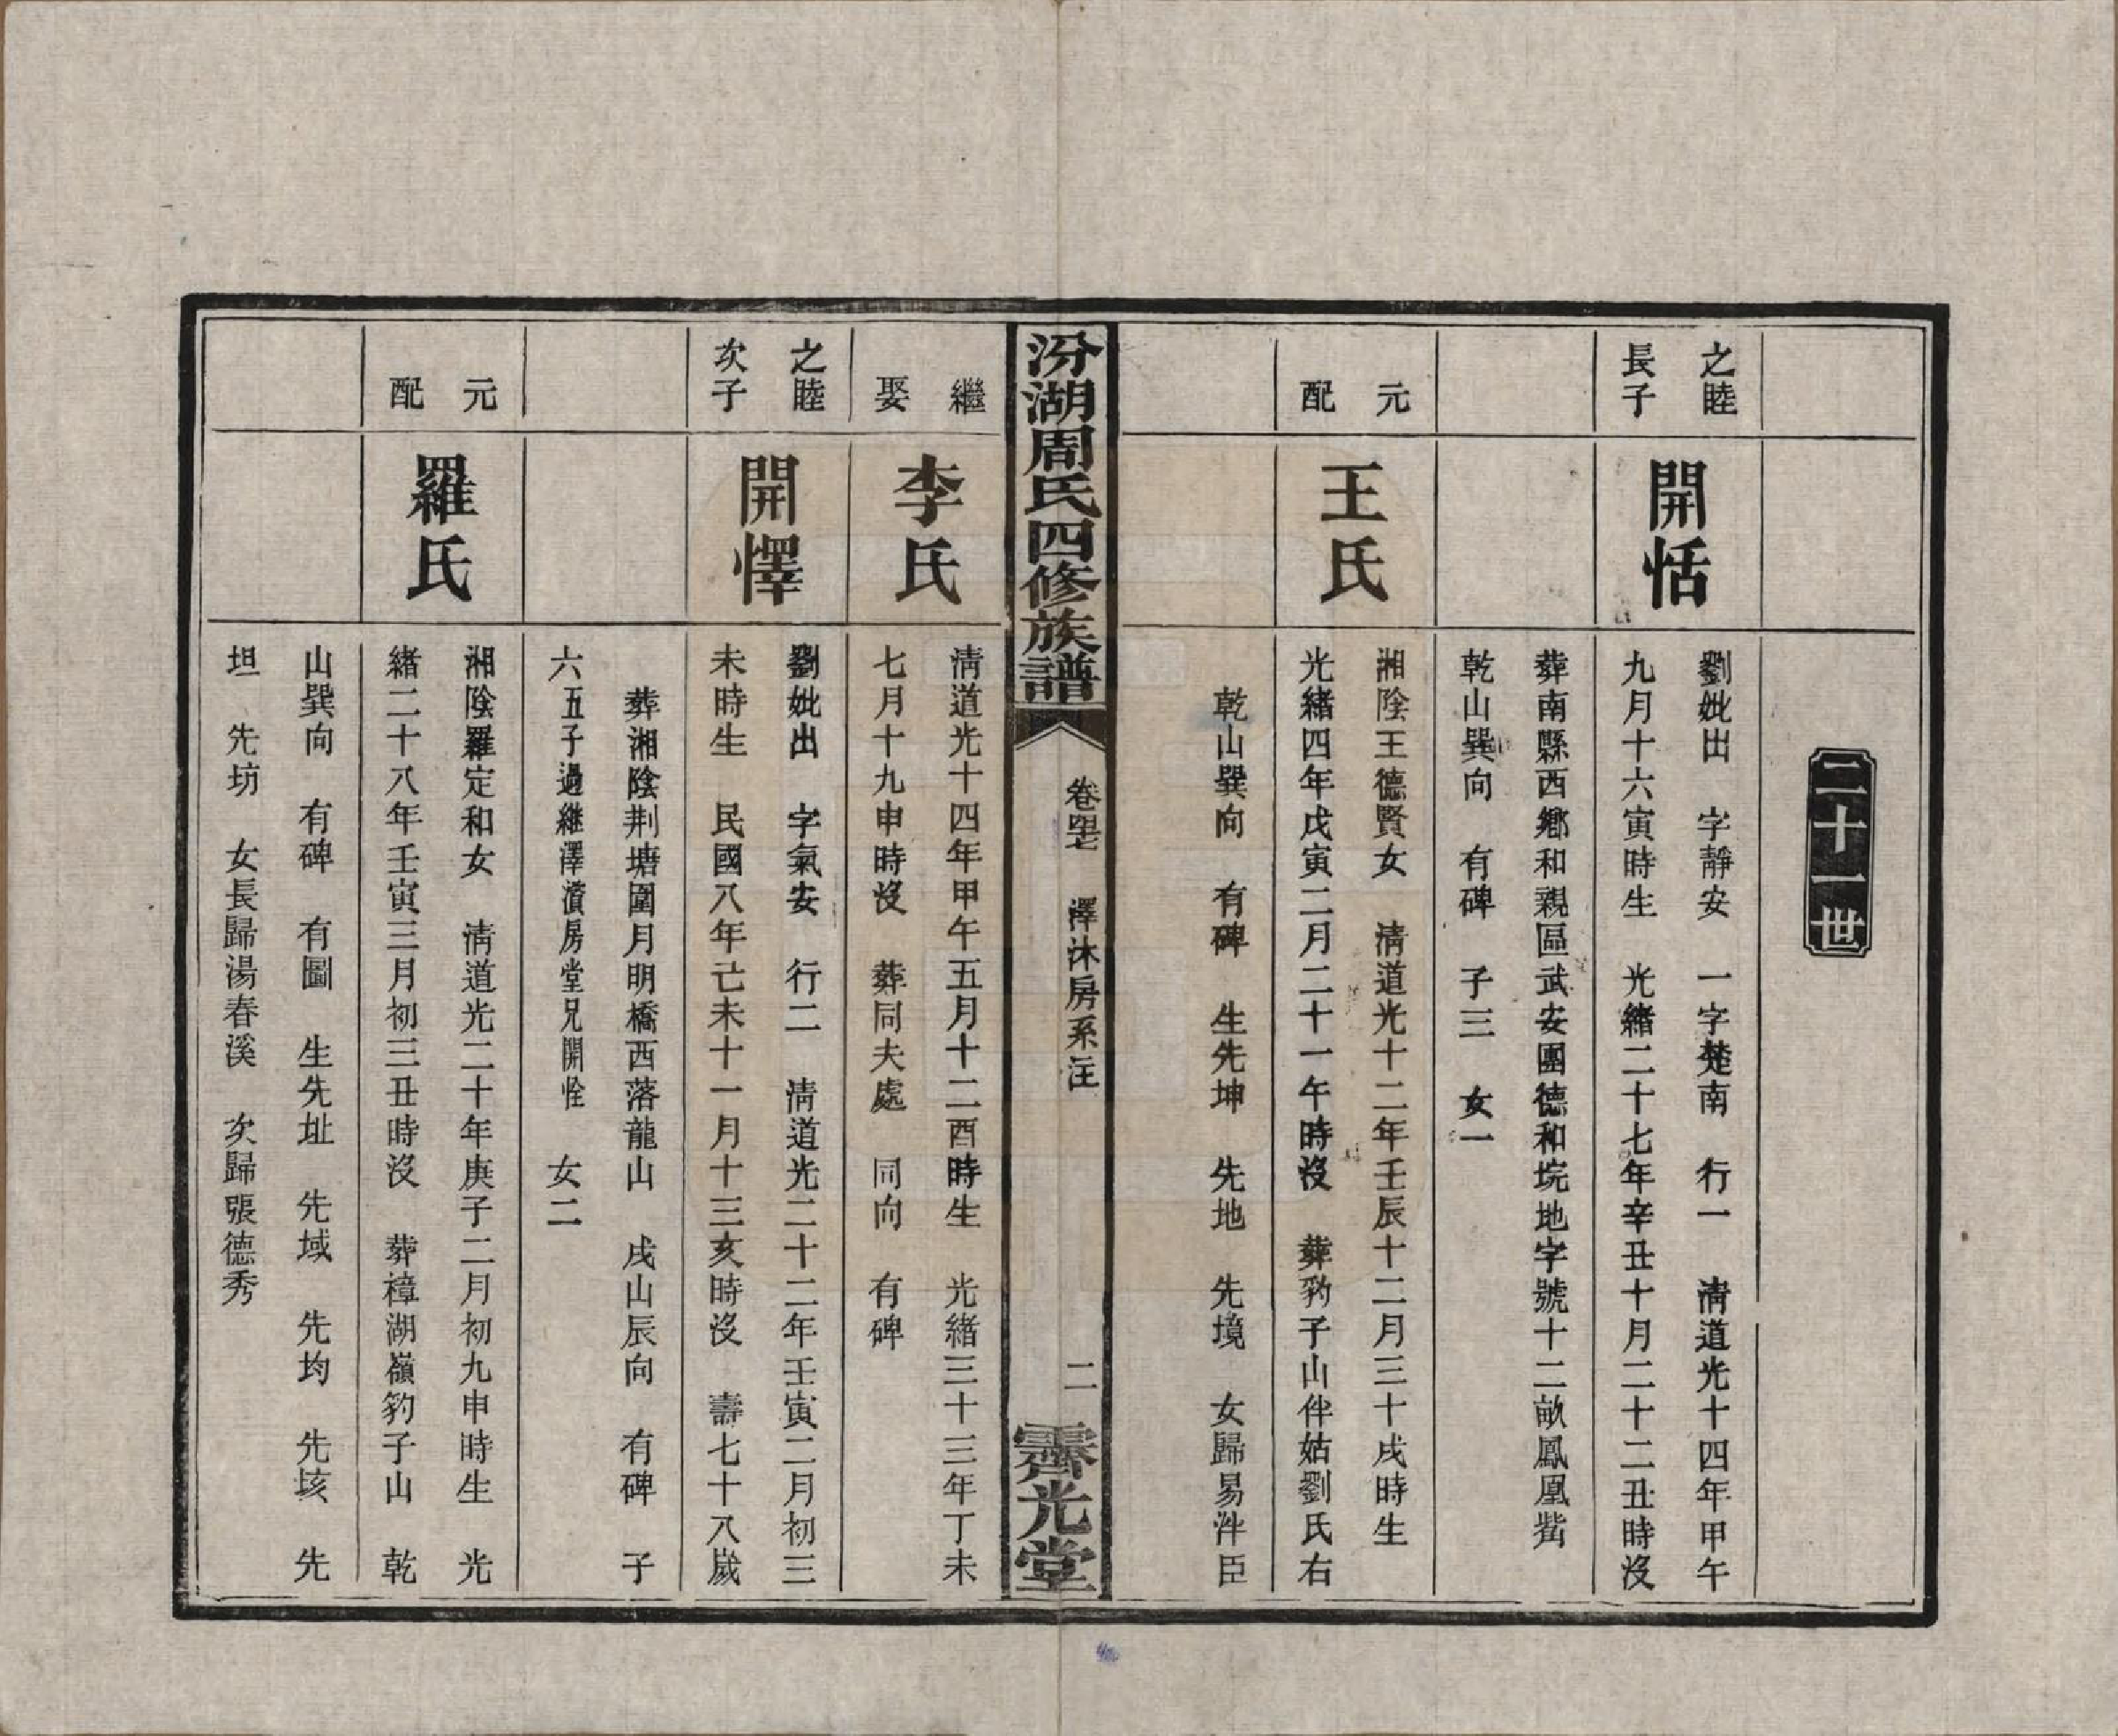 二十一世
之睦
長子
開恬
劉妣出　字靜安　一字楚南　行一　清道光十四年甲午
九月十六寅時生　光緒二十七年辛丑十月二十二丑時沒
葬南縣西鄉和親區武安團德和垸地字號十二畝鳳凰觜
乾山巽向　有碑　子三　女一
元
配
王氏
湘陰王德賢女　清道光十二年壬辰十二月三十戌時生
光緒四年戊寅二月二十一午時沒　葬豹子山伴姑劉氏右
乾山巽向　有碑　生先坤　先地　先境　女歸易泮臣
汾湖周氏四修族譜
卷四七　澤沐房系注
二
霽光堂
繼
娶
李氏
清道光十四年甲午五月十二酉時生　光緒三十三年丁未
七月十九申時沒　葬同夫處　同向　有碑
之睦
次子
開懌
劉妣出　字氣安　行二　清道光二十二年壬寅二月初三
未時生　民國八年己未十一月十三亥時沒　壽七十八歲
葬湘陰荆塘圍月明橋西落龍山　戌山辰向　有碑　子
六五子過繼澤濆房堂兄開恮　女二
元
配
羅氏
湘陰羅定和女　清道光二十年庚子二月初九申時生　光
緒二十八年壬寅三月初三丑時沒　葬樟湖嶺豹子山　乾
山巽向　有碑　有圖　生先址　先域　先均　先垓　先
坦　先坊　女長歸湯春溪　次歸張德秀